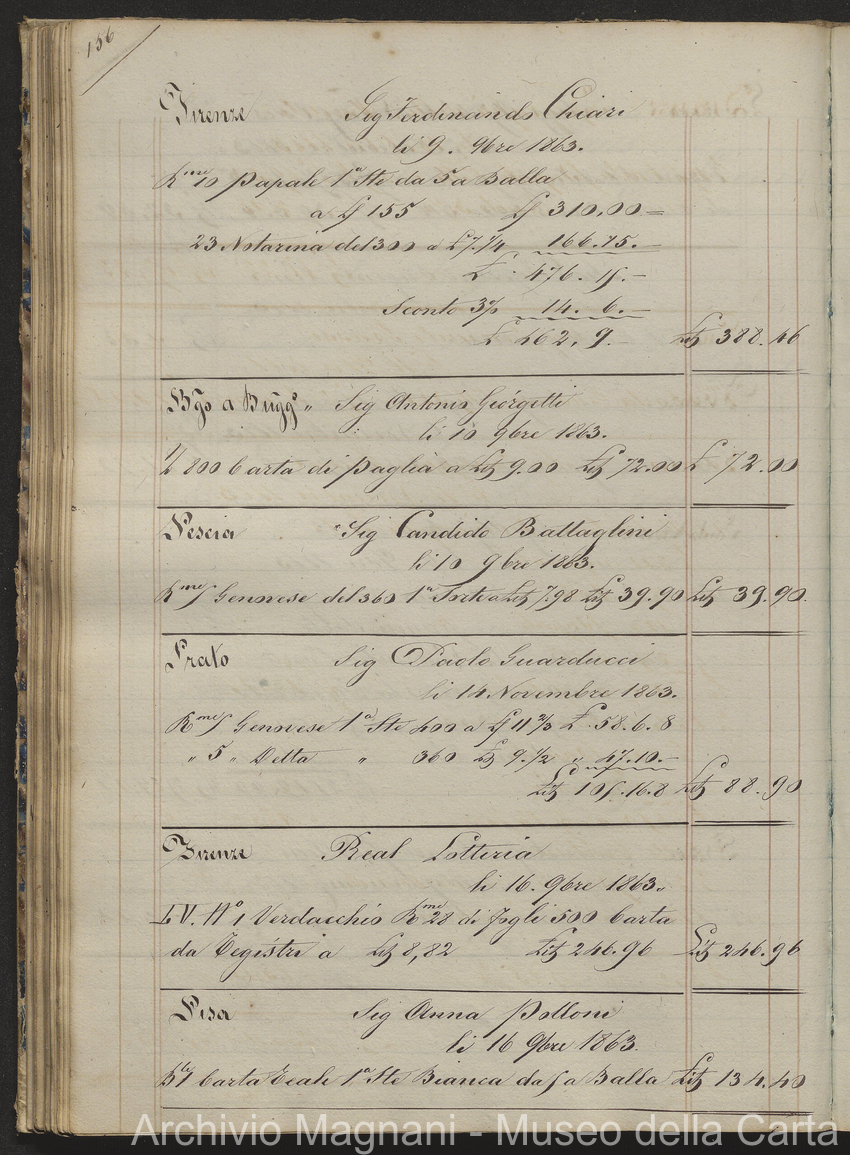 156
Firenze Sig Ferdinando Chiari
li 9. 9bre 1863.
Rme 10 Papale 1a Ste da 5 a Balla
a Lf 155 Lf 310.00 =
23 Notarina del 300 a £ 7.1/4 166.15.—
£ 476.15.—
Sconto 3% 14.6.—
£ 462.9.— Lit 388.46
Bgo a Bugg° „ Sig Antonio Giorgetti
li 10 9bre 1863.
800 Carta di paglia a Lit 9.00 Lit 72.00 £ 72.00
Pescia Sig Candido Battaglini
li 10 9bre 1863.
Rme 5 Genovese del 360 1a a Lit 7.98 Lit 39.90 Lit 39.90
Prato Sig Paolo Guarducci
li 14 Novembre 1863.
Rme 5 Genovese 1a Ste 400 a Lf 11 2/3 £ 58.6.8
„ 5 „ Detta „ 360 9.1/2 „ 47.10.—
105.16.8 Lit 88.90
Firenze Real Lotteria
li 16. 9bre 1863.
L V. N° 1 Verdacchio Rme 28 di fogli 500 Carta
da Registri a Lit 8,82 Lit 246.96 Lit 246.96
Pisa Sig Anna Polloni
li 16 9bre 1863.
Carta Reale 1a Ste Bianca da 5 a Balla Lit 134.40
Archivio Magnani - Museo della Carta